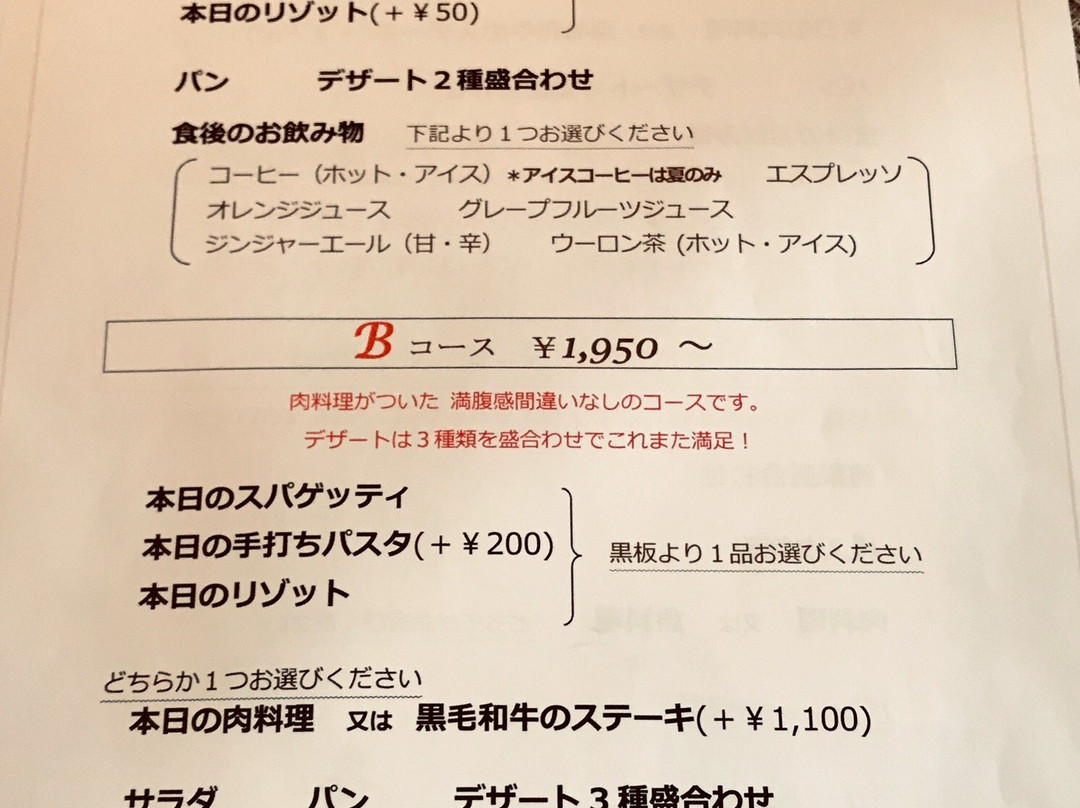 本日のリゾット(+￥50)
パン　デザート２種盛合わせ
食後のお飲み物　下記より１つお選びください
コーヒー（ホット・アイス）＊アイスコーヒーは夏のみ　エスプレッソ
オレンジジュース　グレープフルーツジュース
ジンジャーエール（甘・辛）　ウーロン茶 (ホット・アイス)
B コース　￥1,950　～
肉料理がついた 満腹感間違いなしのコースです。
デザートは３種類を盛合わせでこれまた満足！
本日のスパゲッティ
本日の手打ちパスタ(+￥200)
黒板より１品お選びください
本日のリゾット
どちらか１つお選びください
本日の肉料理　又は　黒毛和牛のステーキ(+￥1,100)
サラダ　パン　デザート３種盛合わせ